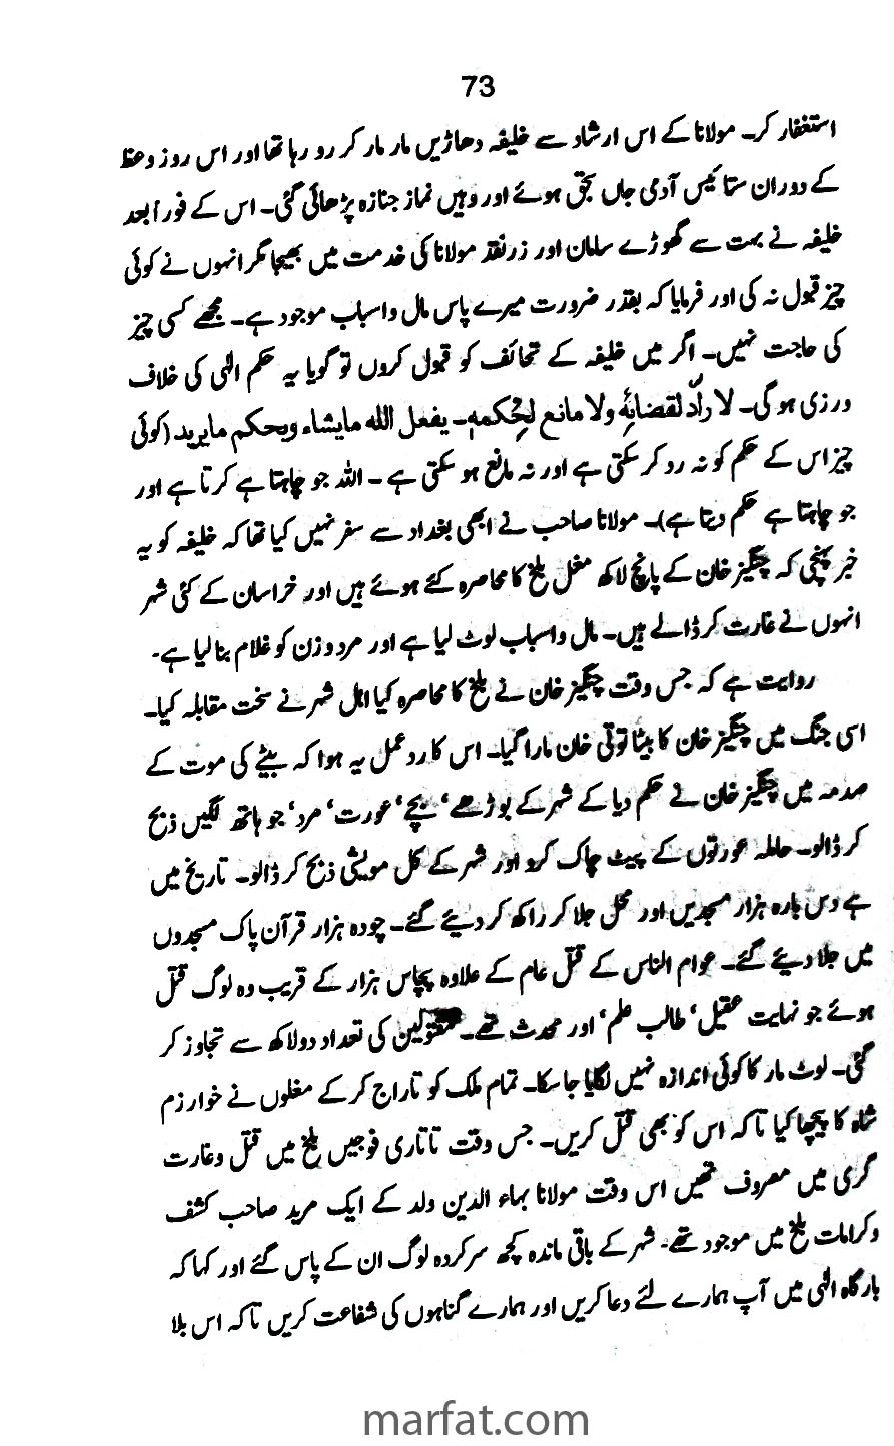 73
استغفار کر۔ مولانا کے اس ارشاد سے خلیفہ دھاڑیں مار مار کر رو رہا تھا اور اس روز وعظ
کے دوران ستائیس آدمی جاں بحق ہوئے اور وہیں نماز جنازہ پڑھائی گئی۔ اس کے فوراً بعد
خلیفہ نے بہت سے گھوڑے سامان اور زر نقد مولانا کی خدمت میں بھیجا مگر انہوں نے کوئی
چیز قبول نہ کی اور فرمایا کہ بقدر ضرورت میرے پاس مال و اسباب موجود ہے۔ مجھے کسی چیز
کی حاجت نہیں۔ اگر میں خلیفہ کے تحائف کو قبول کروں تو گویا یہ حکم الٰہی کی خلاف
ورزی ہو گی۔ لا رادّ لقضائِہٖ ولا مانع لِحُکمہٖ۔ یفعل اللہ مایشاء ویحکم مایرید (کوئی
چیز اس کے حکم کو نہ رد کر سکتی ہے اور نہ مانع ہو سکتی ہے۔ اللہ جو چاہتا ہے کرتا ہے اور
جو چاہتا ہے حکم دیتا ہے)۔ مولانا صاحب نے ابھی بغداد سے سفر نہیں کیا تھا کہ خلیفہ کو یہ
خبر پہنچی کہ چنگیز خان کے پانچ لاکھ مغل بلخ کا محاصرہ کئے ہوئے ہیں اور خراسان کے کئی شہر
انہوں نے غارت کر ڈالے ہیں۔ مال و اسباب لوٹ لیا ہے اور مرد و زن کو غلام بنا لیا ہے۔
روایت ہے کہ جس وقت چنگیز خان نے بلخ کا محاصرہ کیا اہل شہر نے سخت مقابلہ کیا۔
اسی جنگ میں چنگیز خان کا بیٹا توتی خان مارا گیا۔ اس کا ردعمل یہ ہوا کہ بیٹے کی موت کے
صدمہ میں چنگیز خان نے حکم دیا کے شہر کے بوڑھے، بچے، عورت، مرد، جو ہاتھ لگیں ذبح
کر ڈالو۔ حاملہ عورتوں کے پیٹ چاک کرو اور شہر کے کل مویشی ذبح کر ڈالو۔ تاریخ میں
ہے دس بارہ ہزار مسجدیں اور محل جلا کر راکھ کر دیئے گئے۔ چودہ ہزار قرآن پاک مسجدوں
میں جلا دیئے گئے۔ عوام الناس کے قتل عام کے علاوہ پچاس ہزار کے قریب وہ لوگ قتل
ہوئے جو نہایت عقیل، طالب علم، اور محدث تھے۔ مقتولین کی تعداد دو لاکھ سے تجاوز کر
گئی۔ لوٹ مار کا کوئی اندازہ نہیں لگایا جا سکا۔ تمام ملک کو تاراج کر کے مغلوں نے خوارزم
شاہ کا پیچھا کیا تاکہ اس کو بھی قتل کریں۔ جس وقت تاتاری فوجیں بلخ میں قتل و غارت
گری میں مصروف تھیں اس وقت مولانا بہاء الدین ولد کے ایک مرید صاحب کشف
و کرامات بلخ میں موجود تھے۔ شہر کے باقی ماندہ کچھ سرکردہ لوگ ان کے پاس گئے اور کہا کہ
بارگاہ الٰہی میں آپ ہمارے لئے دعا کریں اور ہمارے گناہوں کی شفاعت کریں تاکہ اس بلا
marfat.com